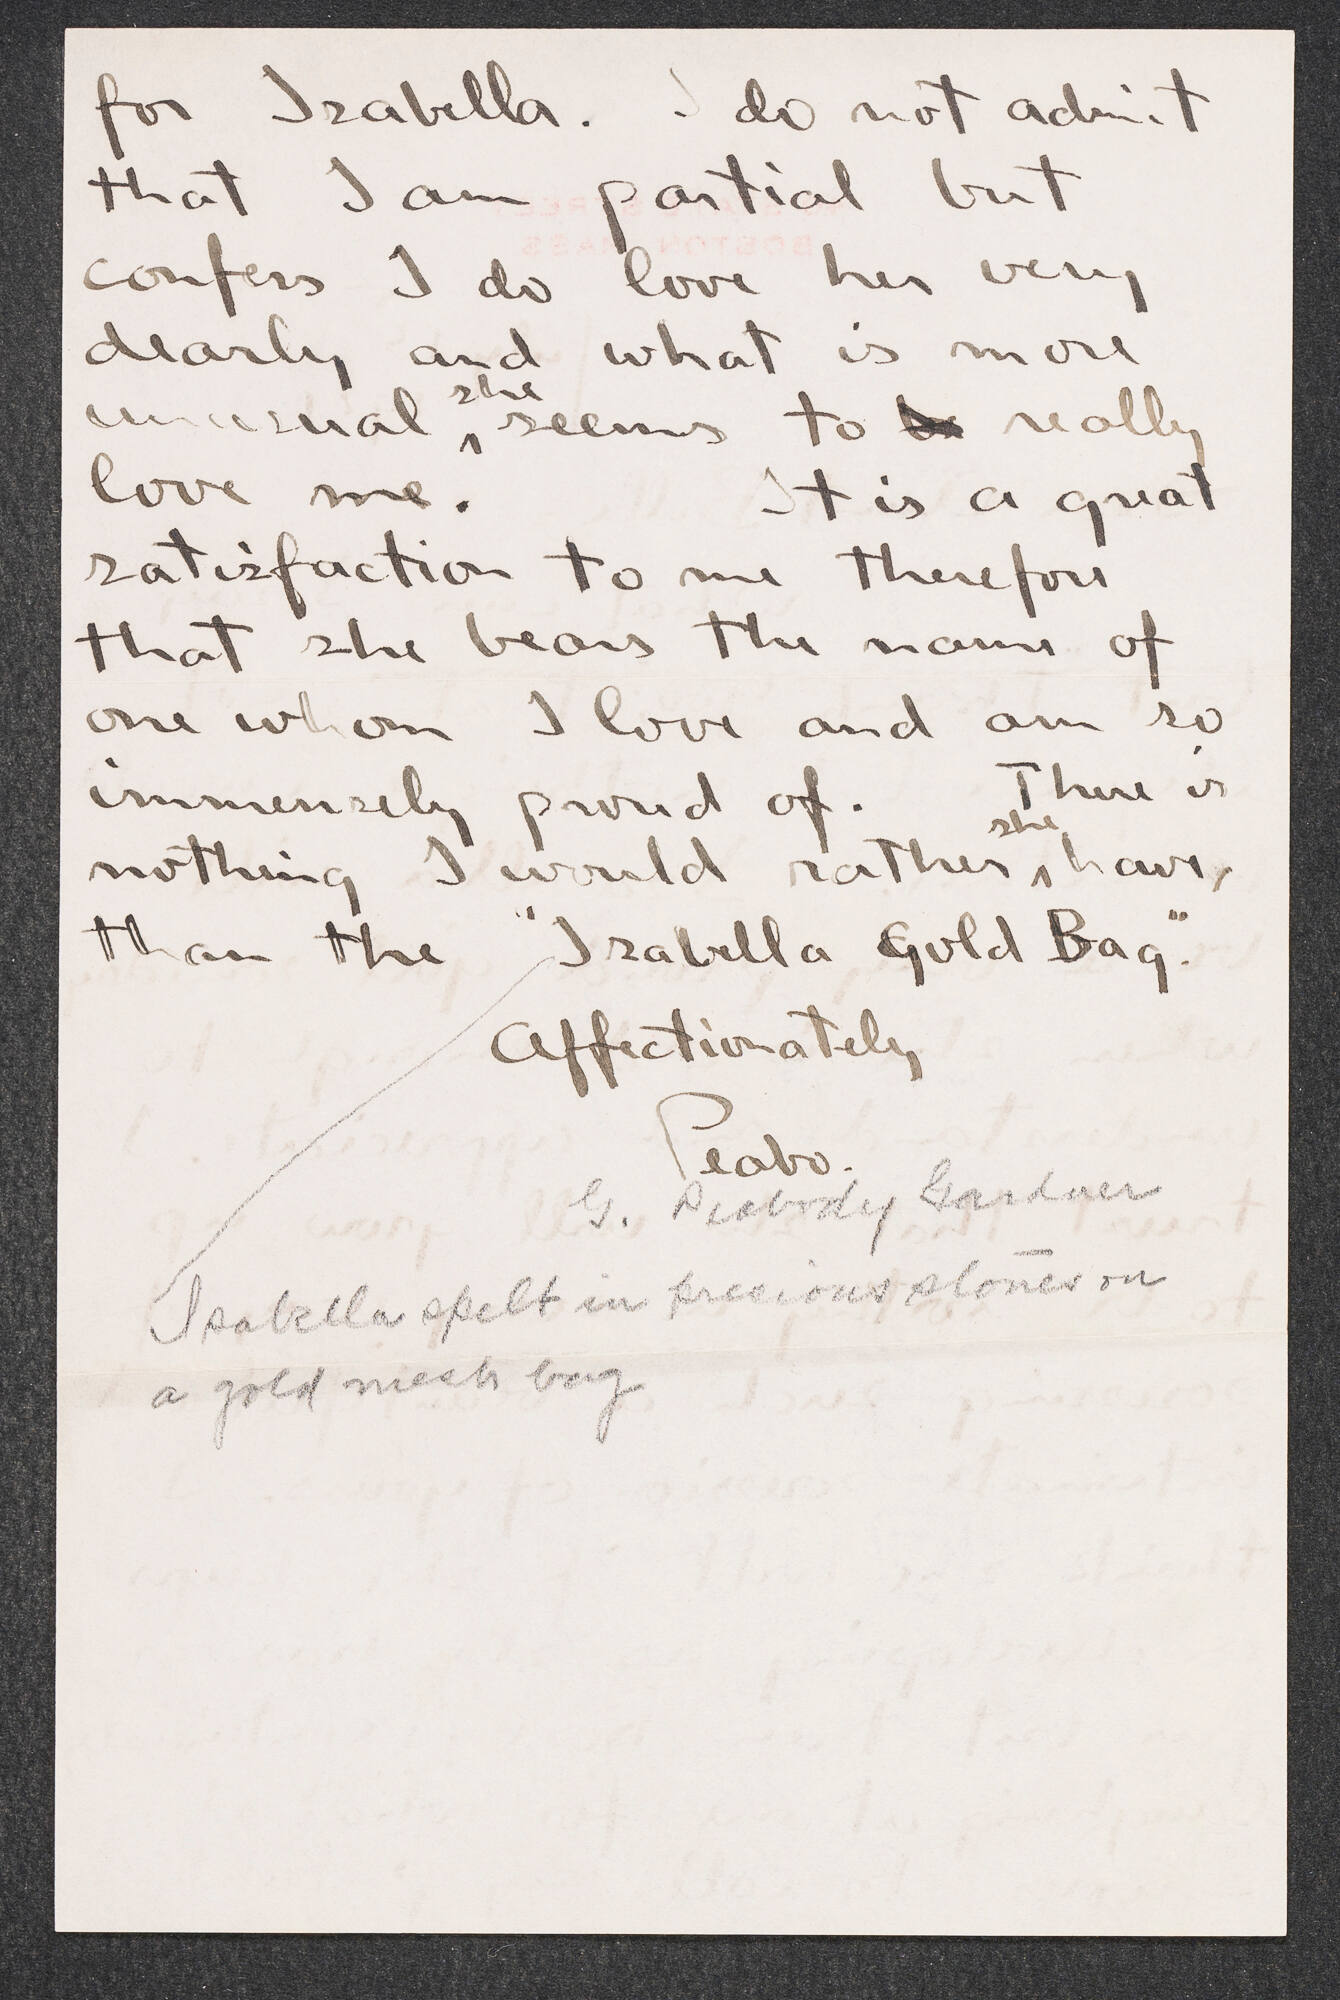 for Isabella. I do not admit
that I am partial but
confess I do love her very
dearly and what is more
unusual, she seems to be really
love me. It is a great
satisfaction to me therefore
that she bears the name of
one whom I love and am so
immensely proud of. There is
nothing I would rather she have,
than the "Isabella Gold Bag".
Affectionately
Peabo.
G. Peabody Gardner
Isabella spelt in precious stones on
a gold mesh bag